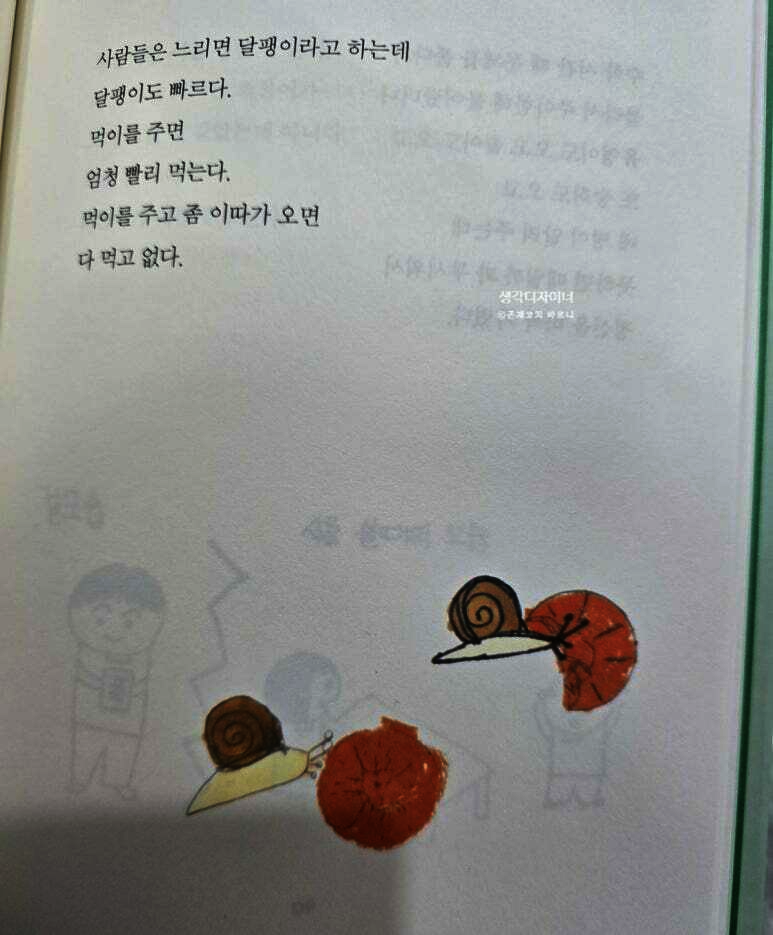 사람들은 느리면 달팽이라고 하는데
달팽이도 빠르다.
먹이를 주면
엄청 빨리 먹는다.
먹이를 주고 좀 이따가 오면
다 먹고 없다.
생각디자이너